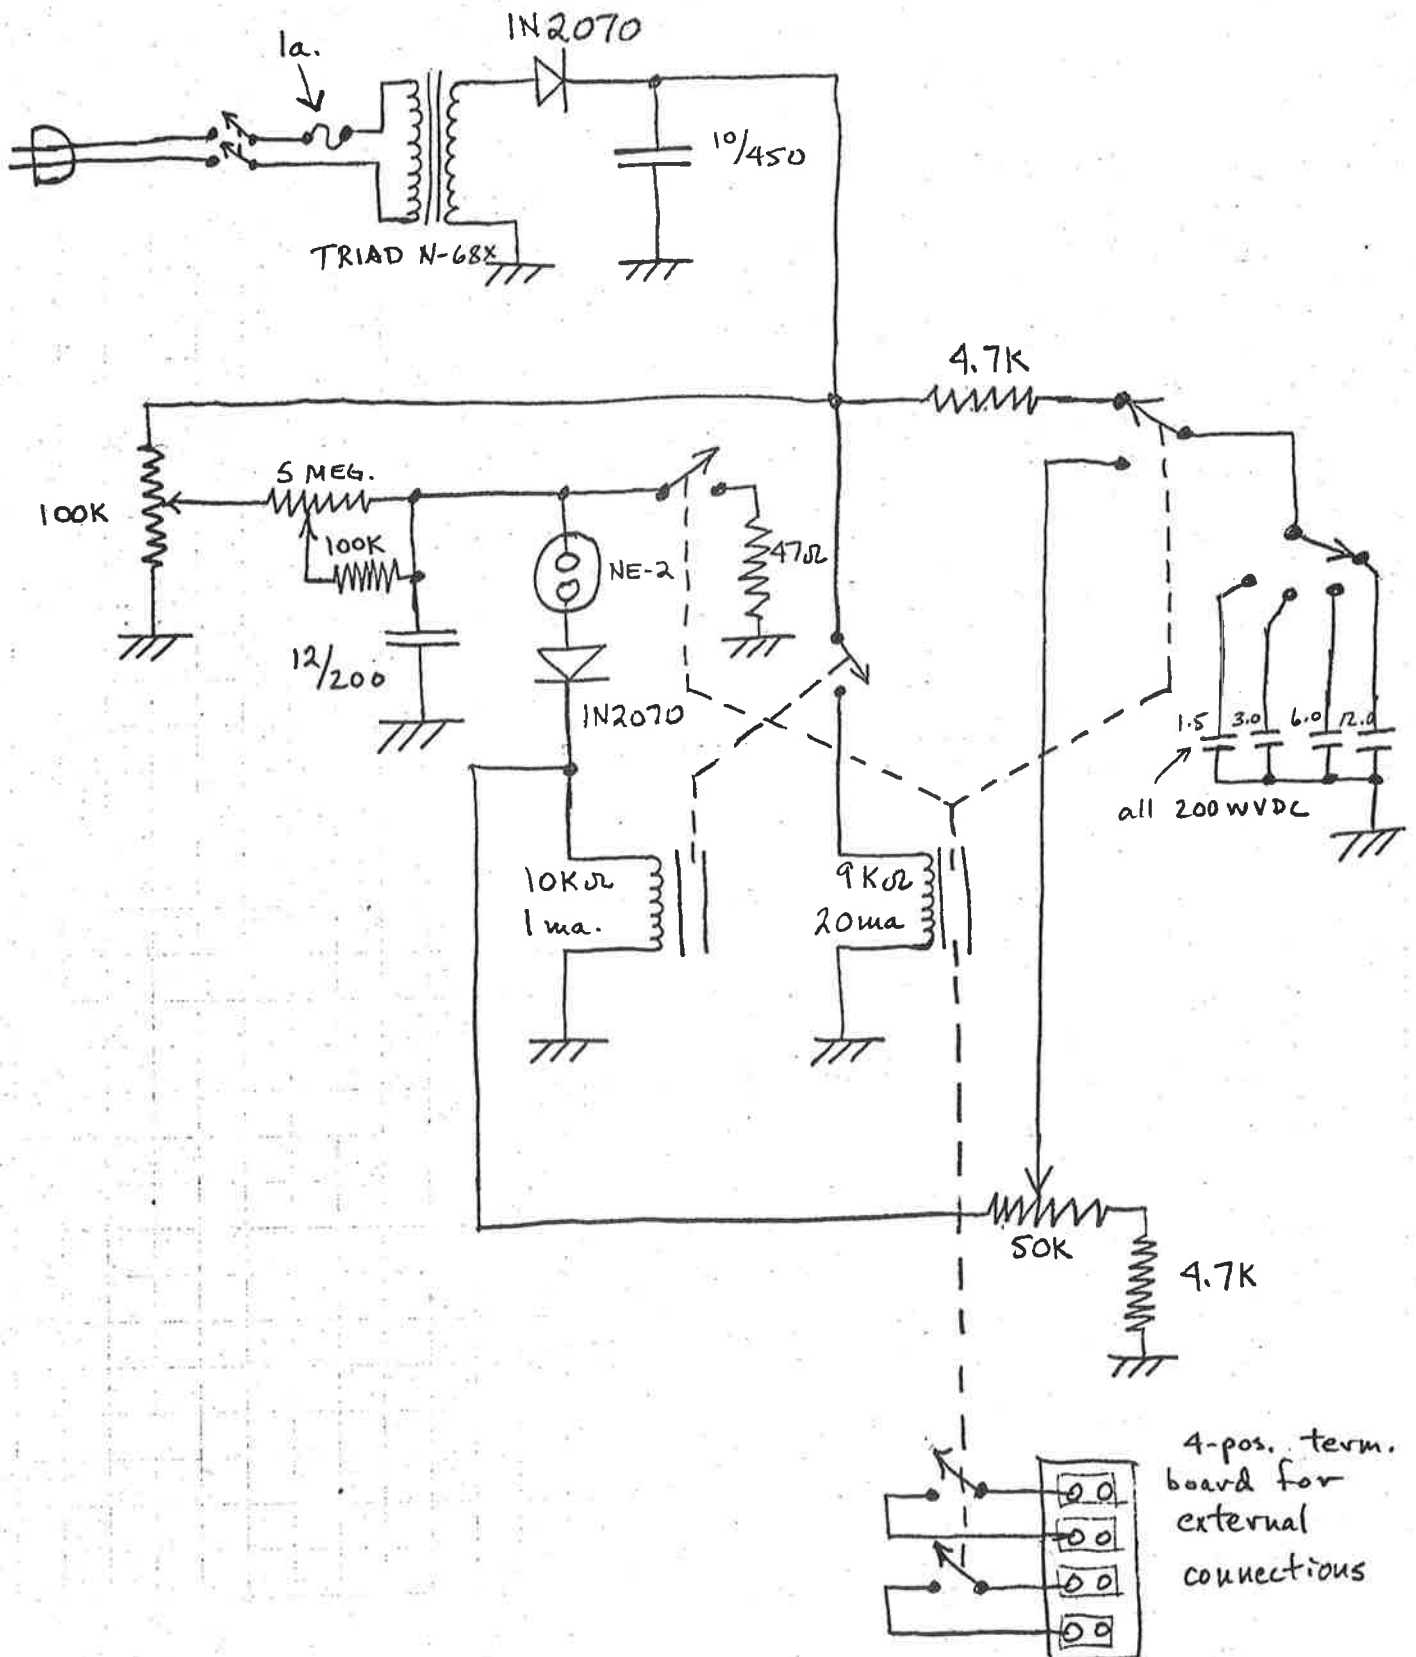 1a.
1N2070
10/450
TRIAD N-68X
4.7K
5 MEG.
100K
100K
NE-2
47Ω
12/200
1N2070
1.5 3.0 6.0 12.0
all 200 WVDC
10KΩ
1 ma.
9KΩ
20 ma
50K
4.7K
4-pos. term.
board for
external
connections